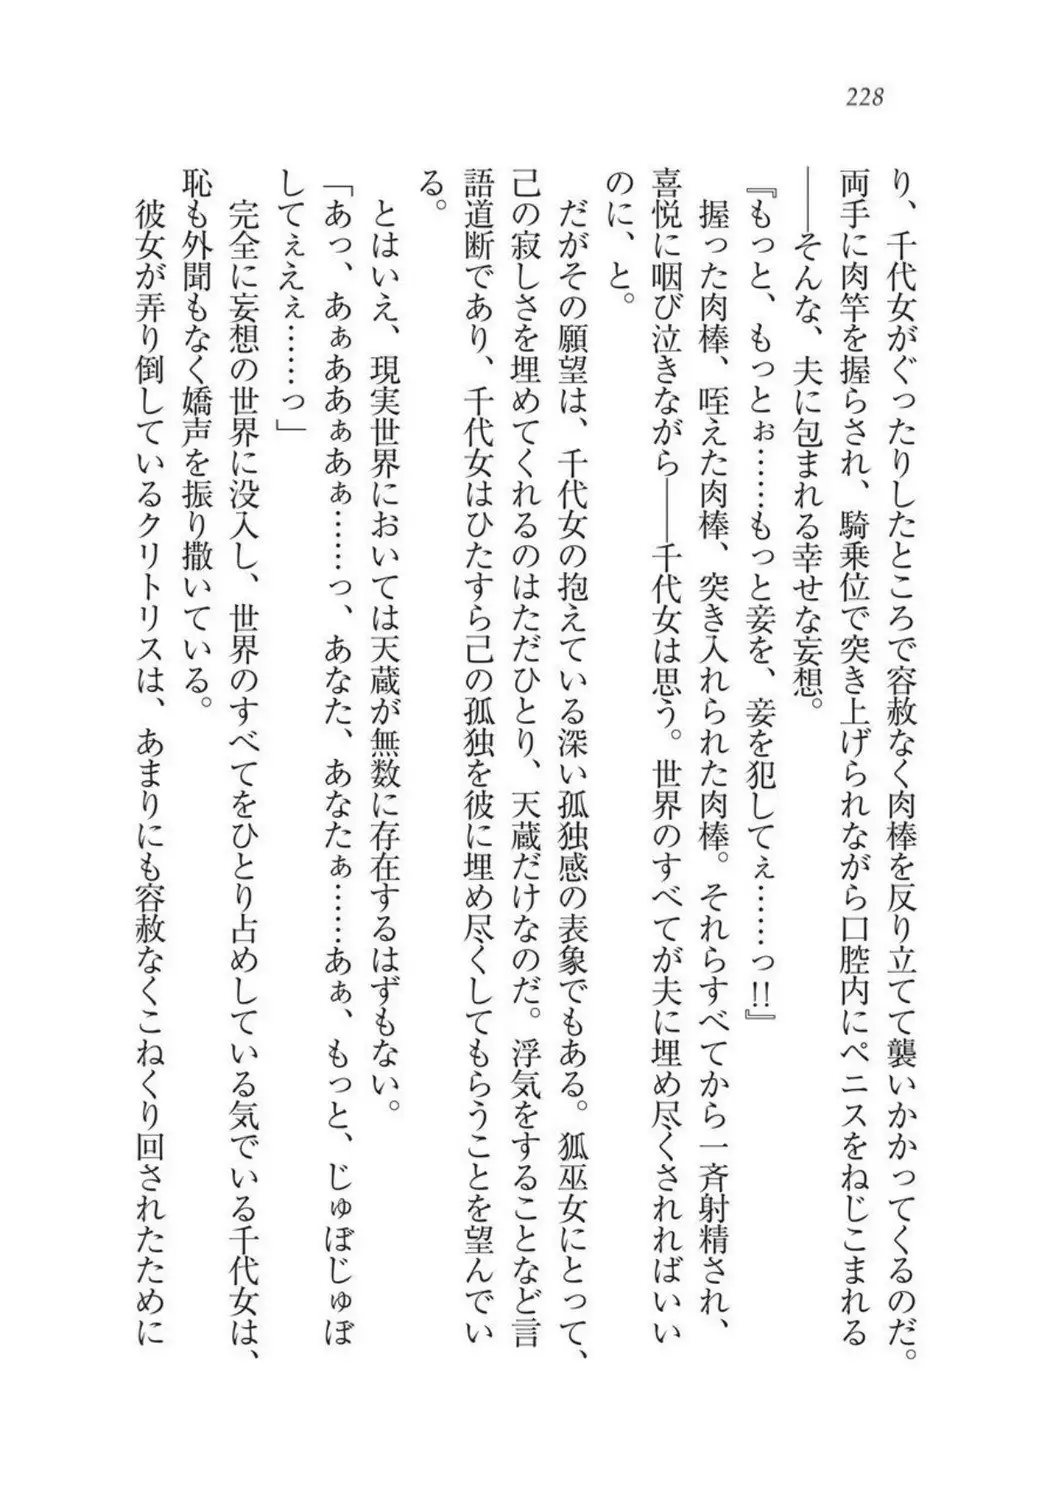 228
り、千代女がぐったりしたところで容赦なく肉棒を反り立てて襲いかかってくるのだ。
両手に肉竿を握らされ、騎乗位で突き上げられながら口腔内にペニスをねじこまれる
――そんな、夫に包まれる幸せな妄想。
『もっと、もっとぉ……もっと妾を、妾を犯してぇ……っ!!』
握った肉棒、咥えた肉棒、突き入れられた肉棒。それらすべてから一斉射精され、
喜悦に咽び泣きながら――千代女は思う。世界のすべてが夫に埋め尽くされればいい
のに、と。
だがその願望は、千代女の抱えている深い孤独感の表象でもある。狐巫女にとって、
己の寂しさを埋めてくれるのはただひとり、天蔵だけなのだ。浮気をすることなど言
語道断であり、千代女はひたすら己の孤独を彼に埋め尽くしてもらうことを望んでい
る。
とはいえ、現実世界においては天蔵が無数に存在するはずもない。
「あっ、あぁああぁあぁ……っ、あなた、あなたぁ……あぁ、もっと、じゅぼじゅぼ
してぇえぇ……っ」
完全に妄想の世界に没入し、世界のすべてをひとり占めしている気でいる千代女は、
恥も外聞もなく嬌声を振り撒いている。
彼女が弄り倒しているクリトリスは、あまりにも容赦なくこねくり回されたために